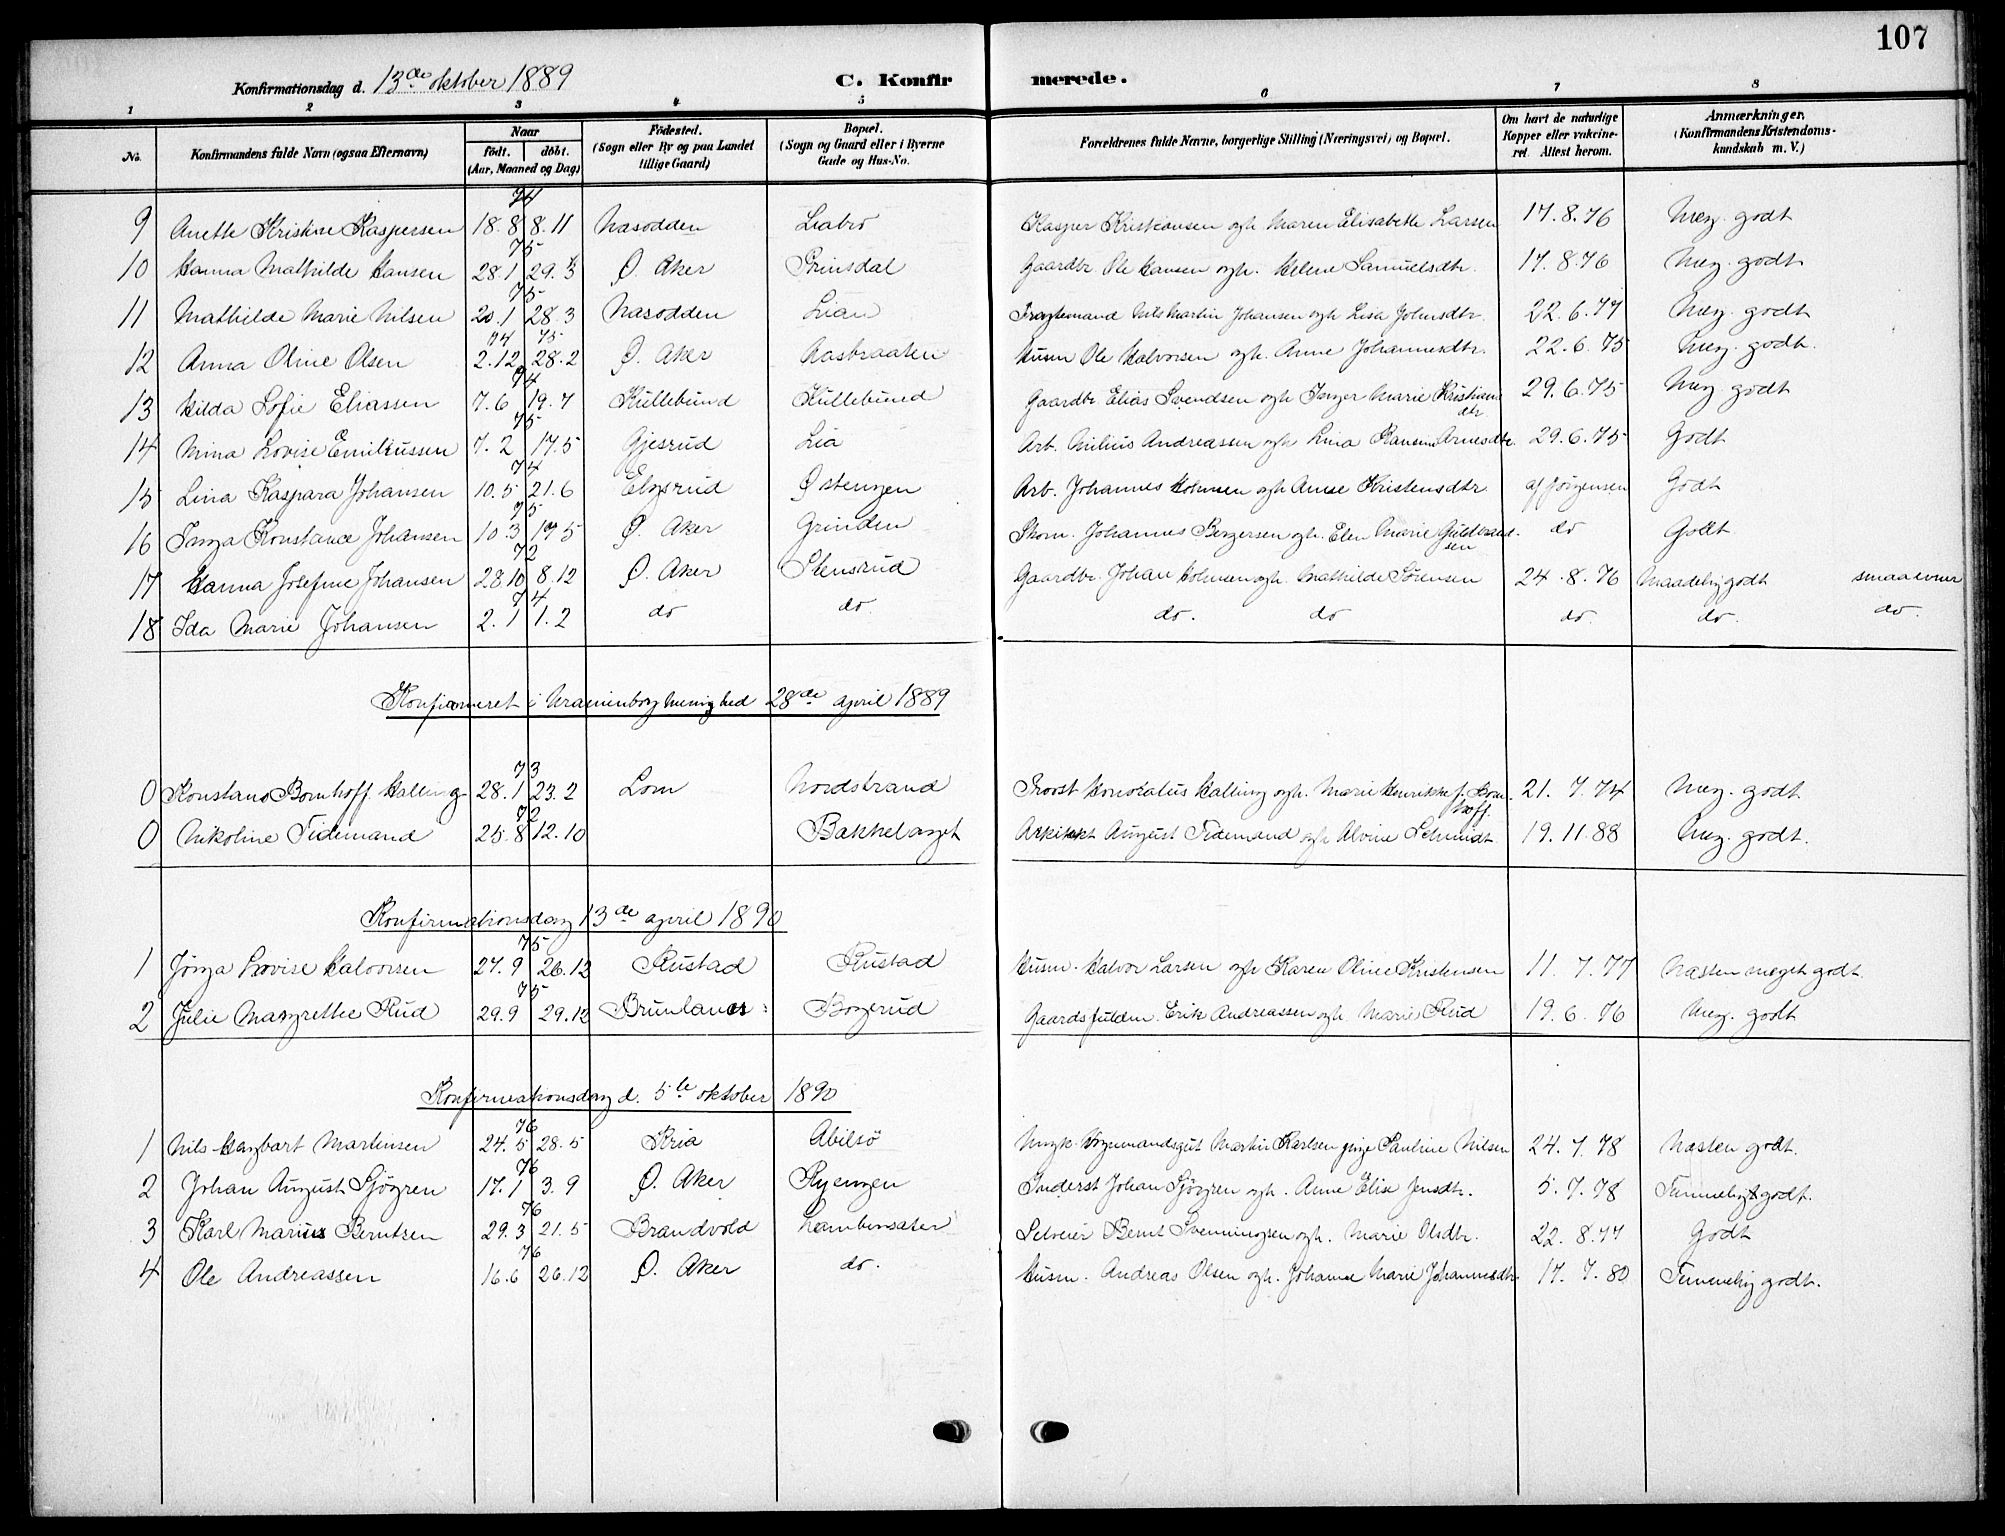 107
Konfirmationsdag d. 13de oktober 1889 C. Konfirmerede.
1 2 3 4 5 6 7 8
No. Konfirmandens fulde Navn (ogsaa Efternavn) Naar født. døbt. (Aar, Maaned og Dag) Fødested. (Sogn eller By og paa Landet tillige Gaard) Bopæl. (Sogn og Gaard eller i Byerne Gade og Hus-No. Forældrenes fulde Navne, borgerlige Stilling (Næringsvei) og Bopæl. Om havt de naturlige Kopper eller vakcineret. Attest herom. Anmærkninger. (Konfirmandens Kristendomskundskab m. V.)
74
9 Anette Kristine Kaspersen 18.8 8.11 Næsodden Liabro Kasper Kristiansen ogh. Maren Elisabeth Larsen 17.8.76 Meg. godt
75
10 Hanna Mathilde Hansen 28.1 29.3 Ø. Aker Prinsdal Gaardbr. Ole Hansen ogh. Helene Samuelsdtr. 17.8.76 Meg. godt
75
11 Mathilde Marie Nilsen 20.1 28.3 Næsodden Lian Fragtemand Nils Martin Johansen ogh Lisa Johnsdtr. 22.6.77 Meg. godt
74 75
12 Anna Oline Olsen 2.12 28.2 Ø. Aker Aasbraaten Husm Ole Halvorsen ogh. Anne Johannesdtr. 22.6.75 Meg. godt.
74
13 Hilda Sofie Eliassen 7.6 19.7 Kullebund Kullebund Gaardbr. Elias Svendsen ogh Inger Marie Kristians dtr 29.6.75 Meg godt
75
14 Mina Lovise Emiliussen 7.2 17.5 Gjesrud Lia Arb. Milius Andreasen ogh Lina Arnesdtr. 29.6.75 Godt
74
15 Lina Kaspara Johansen 10.5 21.6 Elgsrud Østengen Arb. Johannes Holmsen ogh Anne Kristensdtr af Jørgensen Godt
75
16 Inga Konstance Johansen 10.3 17.5 Ø. Aker Grinden Skom. Johannes Bergersen ogh. Elen Marie Guldbrandsen do Godt
72
17 Hanna Josefine Johansen 28.10 8.12 Ø. Aker Stensrud Gaardbr. Johan Holmsen ogh. Mathilde Sørensen 24.8.76 Maadelig godt smaa evner
74
18 Ida Marie Johansen 2.1 1.2 do do. do. do do. do. do.
Konfirmeret i Uranienborg menighed 28de april 1889
73
0 Konstans Bomhoff Halling 28.1 23.2 Lom Nordstrand Provst Honoratus Halling ogh. Marie Henrikke f. Bomhoff. 21.7.74 Meg. godt
72
0 Nikoline Tidemand 25.8 12.10 Bækkelaget Arkitekt August Tidemand ogh Alvine Schmidt 19.11.88 Meg. godt.
Konfirmationsdag 13de april 1890
75
1 Jørga Lovise Halvorsen 27.9 26.12 Rustad Rustad Husm. Halvor Larsen ogh Karen Oline Kristensen 11.7.77 Næsten meget godt.
75
2 Julie Margrethe Rud 29.9 29.12 Brunlanes: Bogerud Gaardsfuldm. Erik Andreassen ogh. Marie Rud 19.6.76 Meg. godt
Konfirmationsdag d. 5te oktober 1890
76
1 Nils Hagbart Martinsen 24.5 28.5 Kria Abilsö Ungk. Martin Karlsen pige Pauline Nilsen 24.7.78 Næsten godt.
76
2 Johan August Sjögren 17.1 3.9 Ø. Aker Ryengen Inderst Johan Sjögren ogh. Anne Elise Jensdtr. 5.7.78 Temmelig godt.
76
3 Karl Marius Berntzen 29.3 21.5 Brandvold Lambersæter Selveier Bernt Svenningsen ogh. Marie Olsdtr. 22.8.77 Godt
76
4 Ole Andreassen 16.6 26.12 Ø. Aker do. Husm. Andreas Olsen ogh. Johanne Marie Johannesdtr. 17.7.80 Temmelig godt.